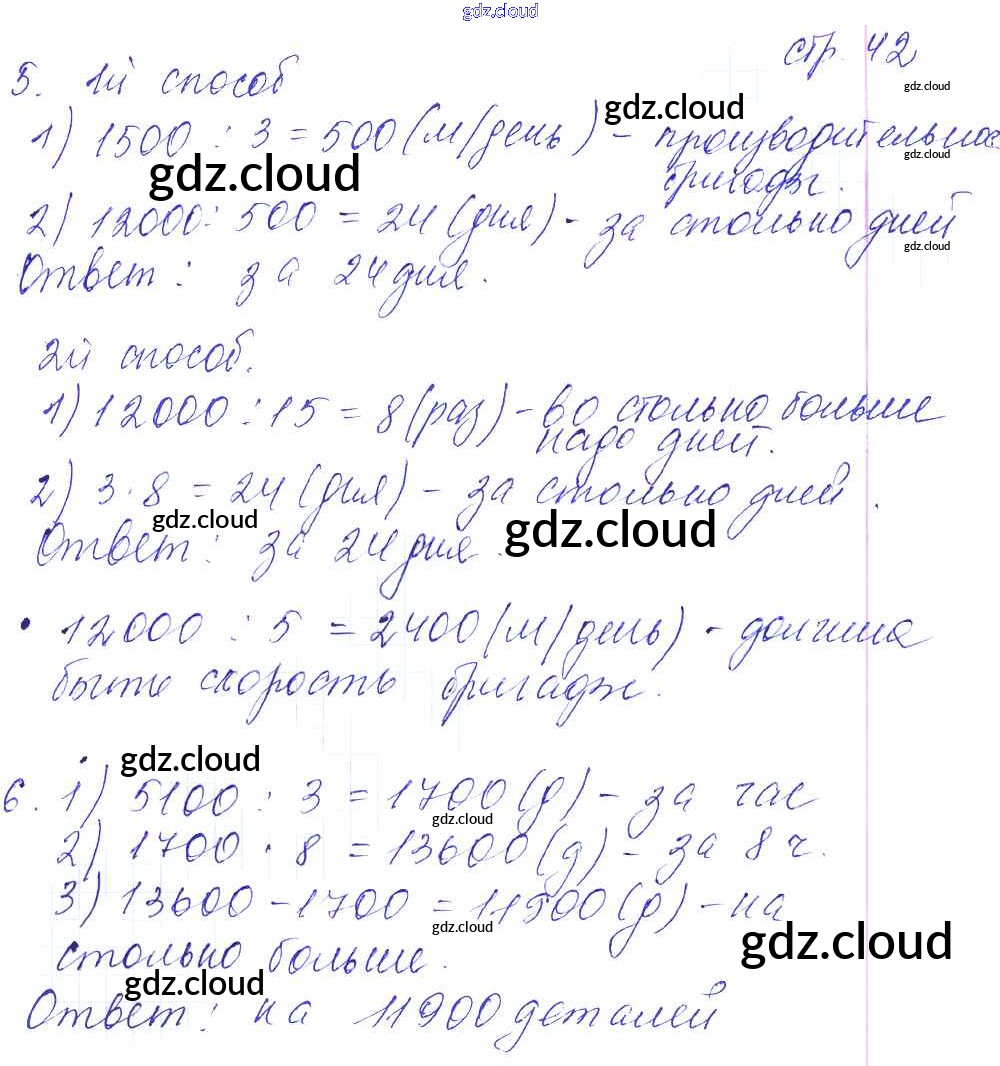 gdz.cloud
стр. 42
gdz.cloud
5. 1й способ
gdz.cloud
1) 1500 : 3 = 500 (м/день) - производительнос
gdz.cloud
бригады.
gdz.cloud
2) 12000 : 500 = 24 (дня) - за столько дней
gdz.cloud
Ответ: за 24 дня.
2й способ.
1) 12000 : 15 = 8 (раз) - во столько больше
надо дней.
2) 3 · 8 = 24 (дня) - за столько дней.
gdz.cloud
gdz.cloud
Ответ: за 24 дня.
• 12000 : 5 = 2400 (м/день) - должна
быть скорость бригады.
gdz.cloud
6. 1) 5100 : 3 = 1700 (д) - за час
gdz.cloud
2) 1700 · 8 = 13600 (д) - за 8 ч.
3) 13600 - 1700 = 11900 (д) - на
gdz.cloud
gdz.cloud
столько больше.
gdz.cloud
Ответ: на 11900 деталей